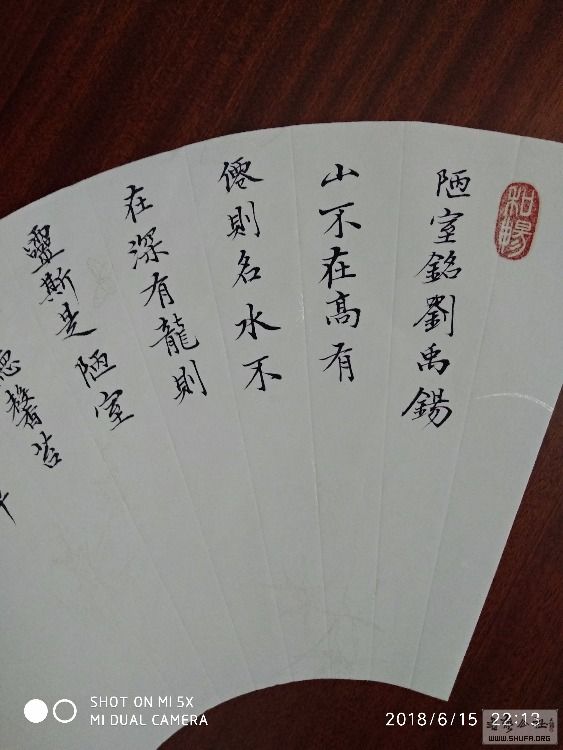 和暢
陋室銘劉禹錫
山不在髙有
僊則名水不
在深有龍則
靈斯是陋室
德馨苔
SHOT ON MI 5X
MI DUAL CAMERA
2018/6/15 22:13
WWW.SHUFA.ORG